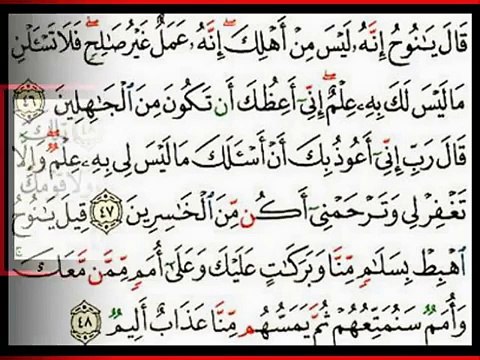 قَالَ يَٰنُوحُ إِنَّهُۥ لَيْسَ مِنْ أَهْلِكَ ۖ إِنَّهُۥ عَمَلٌ غَيْرُ صَٰلِحٍ ۖ فَلَا تَسْـَٔلْنِ
مَا لَيْسَ لَكَ بِهِۦ عِلْمٌ ۖ إِنِّىٓ أَعِظُكَ أَن تَكُونَ مِنَ ٱلْجَٰهِلِينَ ٤٦
قَالَ رَبِّ إِنِّىٓ أَعُوذُ بِكَ أَنْ أَسْـَٔلَكَ مَا لَيْسَ لِى بِهِۦ عِلْمٌ ۖ وَإِلَّا
تَغْفِرْ لِى وَتَرْحَمْنِىٓ أَكُن مِّنَ ٱلْخَٰسِرِينَ ٤٧ قِيلَ يَٰنُوحُ
ٱهْبِطْ بِسَلَٰمٍ مِّنَّا وَبَرَكَٰتٍ عَلَيْكَ وَعَلَىٰٓ أُمَمٍ مِّمَّن مَّعَكَ ۚ
وَأُمَمٌ سَنُمَتِّعُهُمْ ثُمَّ يَمَسُّهُم مِّنَّا عَذَابٌ أَلِيمٌ ٤٨